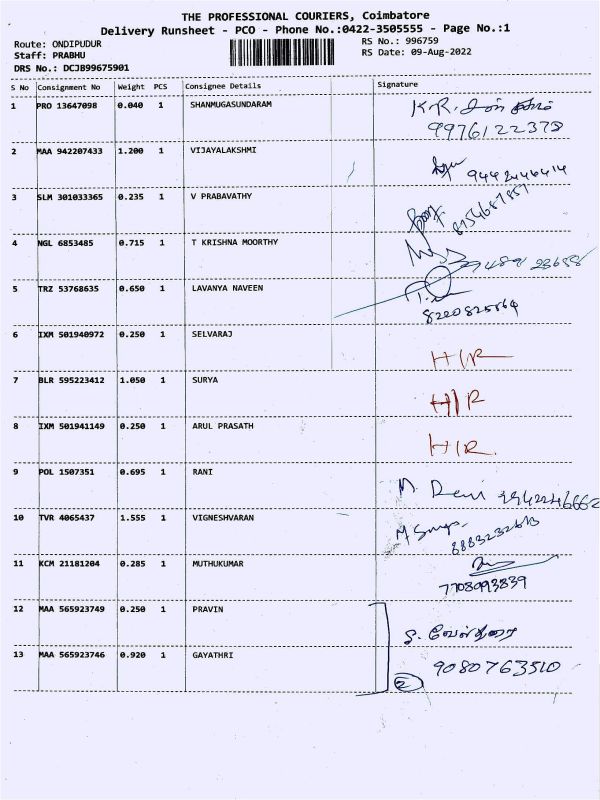 THE PROFESSIONAL COURIERS, Coimbatore
Delivery Runsheet - PCO - Phone No.:0422-3505555 - Page No.:1
Route: ONDIPUDUR RS No.: 996759
Staff: PRABHU RS Date: 09-Aug-2022
DRS No.: DCJB99675901
S No Consignment No Weight PCS Consignee Details Signature
1 PRO 13647098 0.040 1 SHANMUGASUNDARAM K.R.
9976122378
2 MAA 942207433 1.200 1 VIJAYALAKSHMI
9442446414
3 SLM 301033365 0.235 1 V PRABAVATHY
4 NGL 6853485 0.715 1 T KRISHNA MOORTHY
5 TRZ 53768635 0.650 1 LAVANYA NAVEEN
8220825864
6 IXM 501940972 0.250 1 SELVARAJ H/R
7 BLR 595223412 1.050 1 SURYA H/R
8 IXM 501941149 0.250 1 ARUL PRASATH H/R.
9 POL 1507351 0.695 1 RANI
10 TVR 4065437 1.555 1 VIGNESHVARAN
11 KCM 21181204 0.285 1 MUTHUKUMAR
7708093839
12 MAA 565923749 0.250 1 PRAVIN
13 MAA 565923746 0.920 1 GAYATHRI 9080763510
2